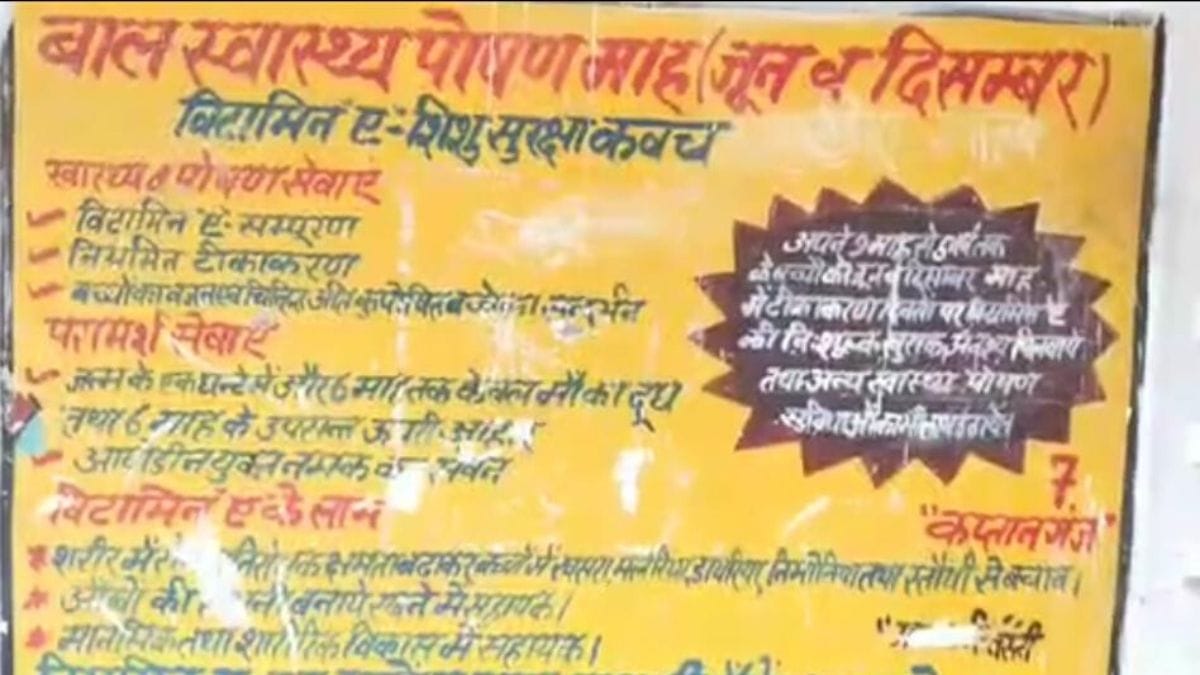 बाल स्वास्थ्य पोषण माह (जून व दिसम्बर)
विटामिन ए:- शिशु सुरक्षा कवच
स्वास्थ्य व पोषण सेवाएं
विटामिन ए- सम्पूरण
नियमित टीकाकरण
बच्चों का वजन एवं चिन्हित अति कुपोषित
परामर्श सेवाएं
जन्म के एक घन्टे में और 6 माह तक केवल माँ का दूध
तथा 6 माह के उपरान्त ऊपरी
आयोडीन युक्त नमक का सेवन
विटामिन ए के लाभ
शरीर में क्षमता बढाकर बच्चों में खसरा, मलेरिया, डायरिया, निमोनिया तथा रतौंधी से बचाव।
आँखो की बनाये रखने में सहायक।
मानसिक तथा शारीरिक विकास में सहायक।
अपने 9 माह से 5 वर्ष तक
के बच्चों को जून व दिसम्बर माह
में टीकाकरण दिवसों पर विटामिन ए
की निःशुल्क खुराक अवश्य पिलवायें
तथा अन्य स्वास्थ्य पोषण
सुविधाओं का भी लाभ उठायें।
7
"कप्तानगंज"